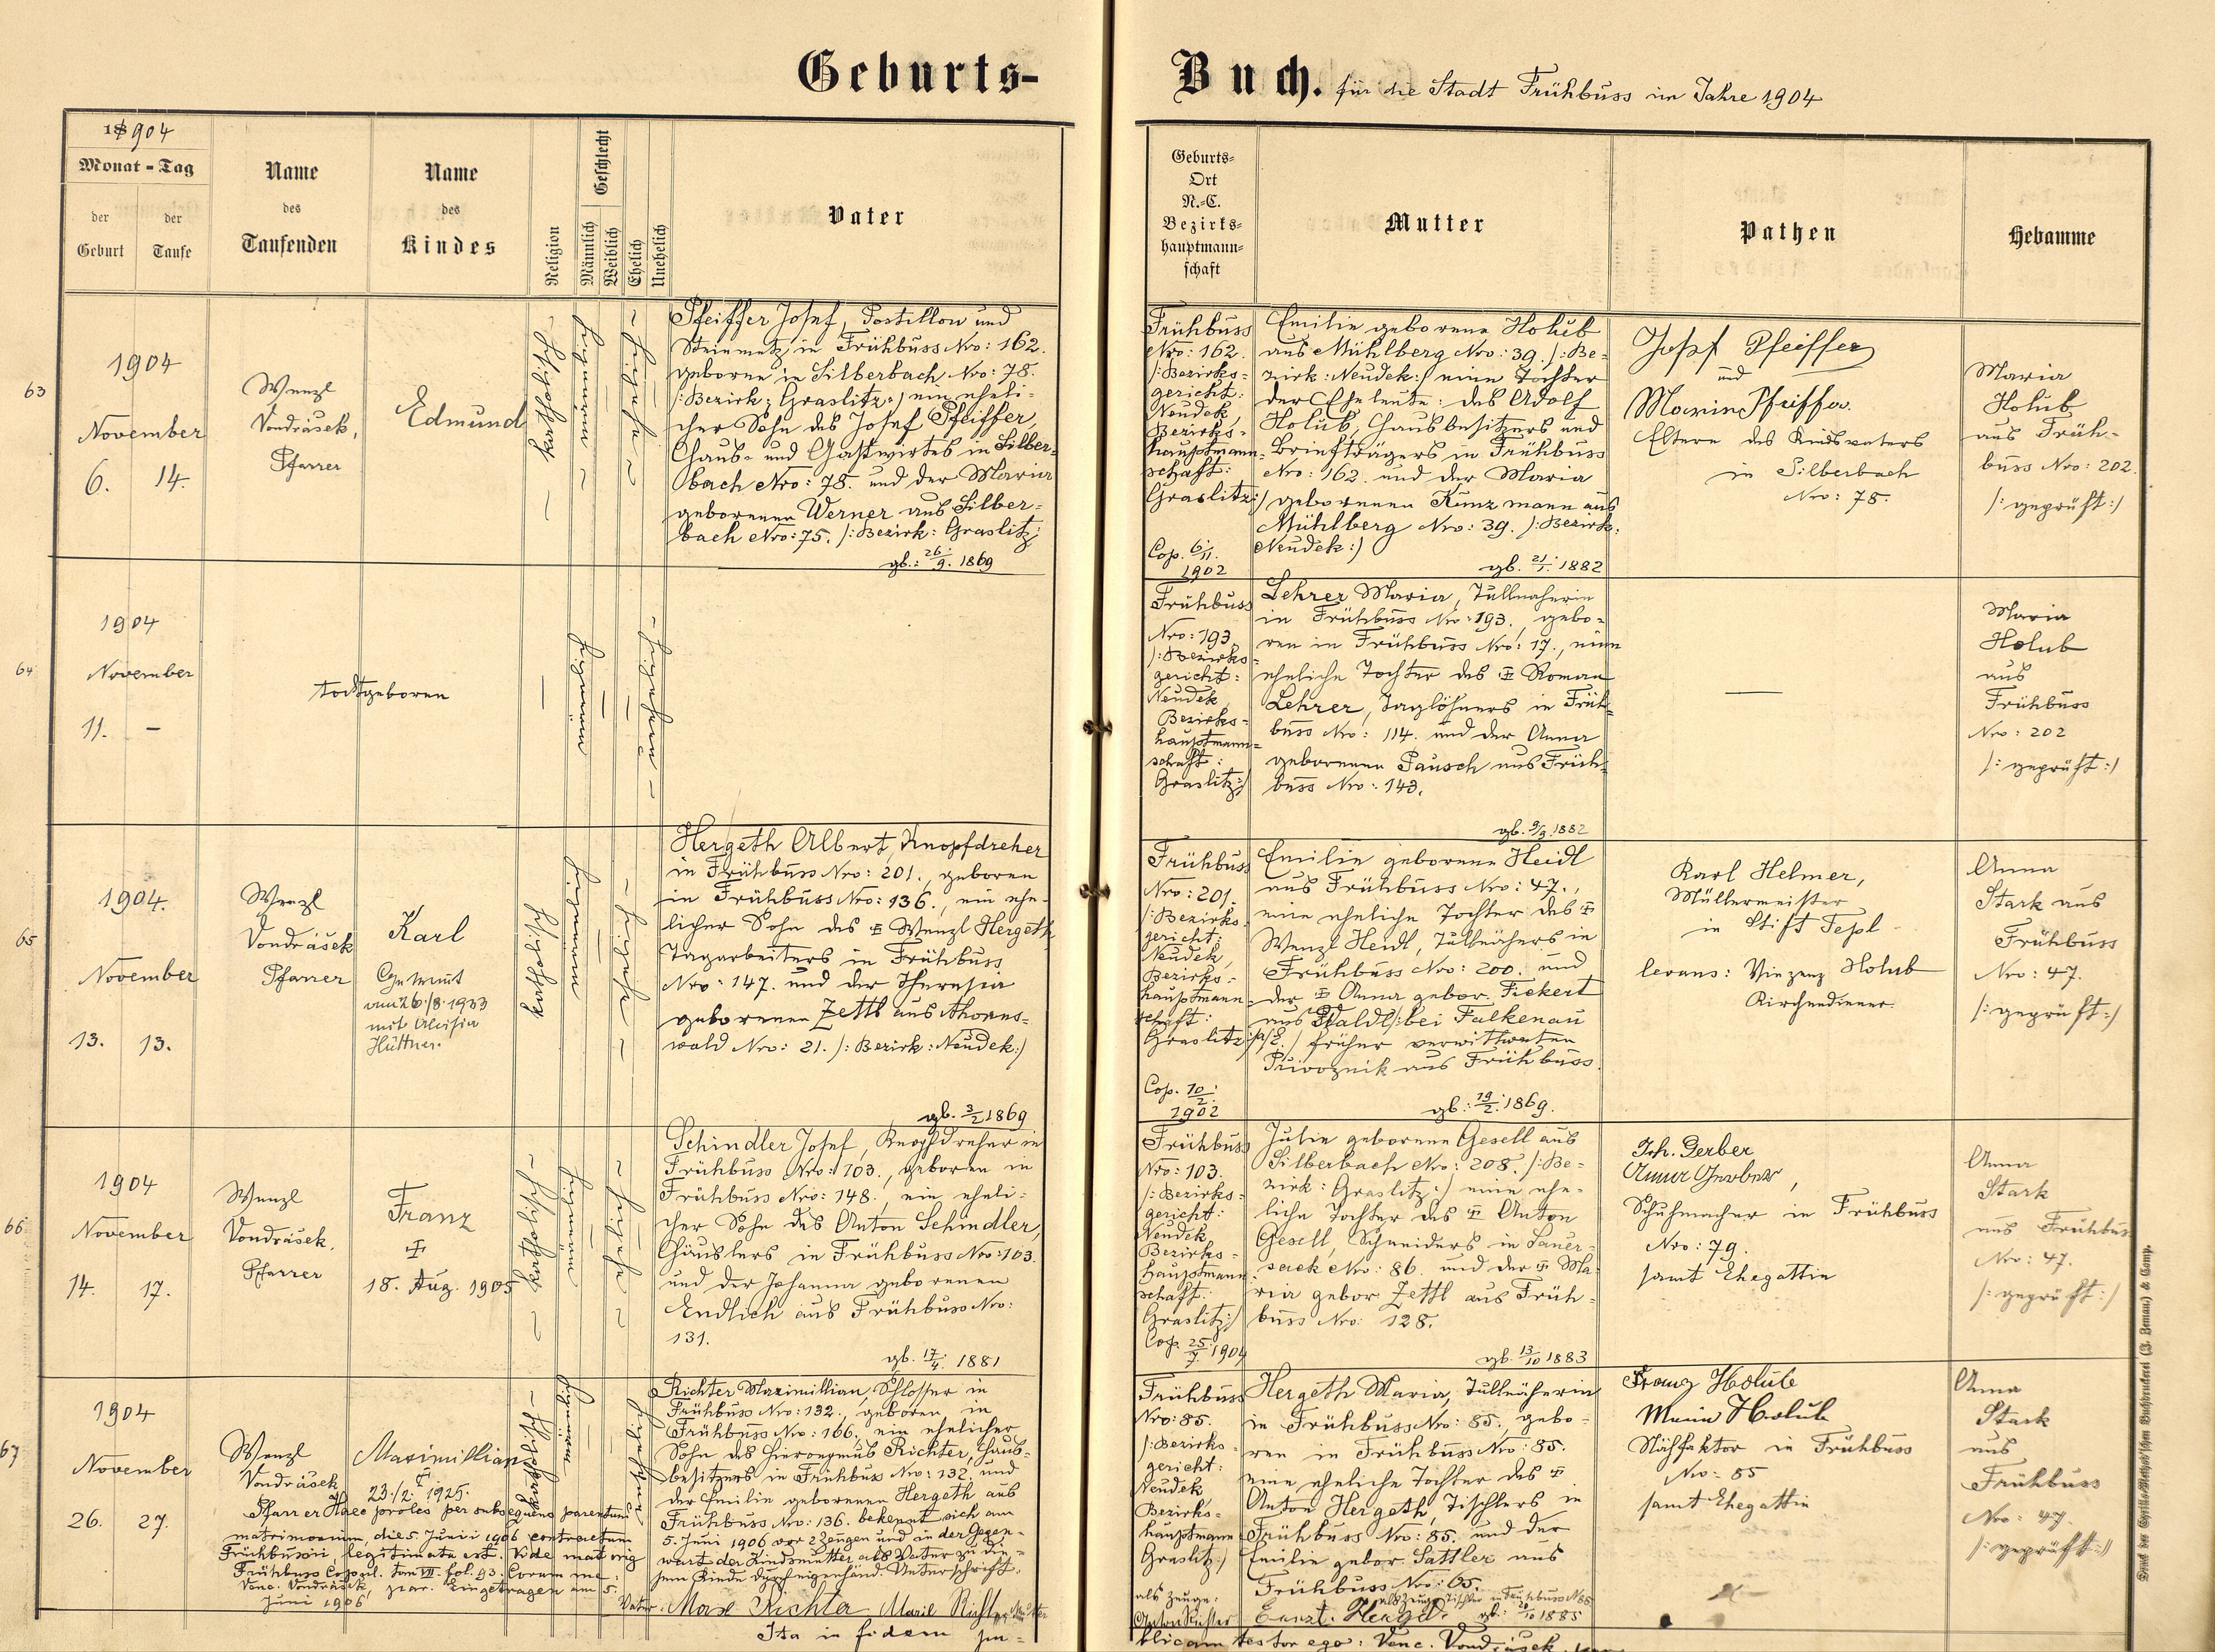 Geburts-Buch. für die Stadt Frühbuss im Jahre 1904
1904
Monat - Tag
der Geburt
der Taufe
Name des Taufenden
Name des Kindes
Religion
Geschlecht
Männlich
Weiblich
Ehelich
Unehelich
Vater
Geburts-
Ort
N.-C.
Bezirks-
hauptmann-
schaft
Mutter
Pathen
Hebamme
63
1904
November
6. 14.
Wenzl
Vondrášek,
Pfarrer
Edmund
Pfeiffer Josef, Postillon und
Steinmetz in Frühbuss Nro: 162.
geboren in Silberbach Nro: 78.
/: Bezirk: Graslitz :/ ein eheli-
cher Sohn des Josef Pfeiffer,
Haus- und Gastwirtes in Silber-
bach Nro: 78. und der Maria
geborenen Werner aus Silber-
bach Nro: 75. /: Bezirk: Graslitz:
gb.: 26/9. 1869
Frühbuss
Nro: 162.
/: Bezirks-
gericht:
Neudek,
Bezirks-
hauptmann-
schaft:
Graslitz:/
Cop. 6/11.
1902
Emilie geborene Holub
aus Mühlberg Nro: 39. /: Be-
zirk: Neudek:/ eine Tochter
der Eheleute: des Adolf
Holub, Hausbesitzers und
Briefträgers in Frühbuss
Nro: 162. und der Maria
geborenen Kunzmann aus
Mühlberg Nro: 39. /: Bezirk:
Neudek:/
gb. 21/1. 1882
Josef Pfeiffer
und
Maria Pfeiffer.
Eltern des Kindsvaters
in Silberbach
Nro: 78.
Maria
Holub
aus Früh-
buss Nro: 202.
/: geprüft :/
64
1904
November
11. -
todtgeboren
Frühbuss
Nro: 193
/: Bezirks-
gericht:
Neudek
Bezirks-
hauptmann-
schaft:
Graslitz:/
Lehrer Maria, Tüllnäherin
in Frühbuss Nro: 193., gebo-
ren in Frühbuss Nro: 17., eine
eheliche Tochter des ☩ Roman
Lehrer, Taglöhners in Früh-
buss Nro: 114. und der Anna
geborenen Pausch aus Früh-
buss Nro: 143.
gb. 9/9. 1882
Maria
Holub
aus
Frühbuss
Nro: 202
/: geprüft :/
65
1904.
November
13. 13.
Wenzl
Vondrášek
Pfarrer
Karl
Getraut
am 26./8. 1933
mit Aloisia
Hüttner.
Hergeth Albert, Knopfdreher
in Frühbuss Nro: 201., geboren
in Frühbuss Nro: 136., ein ehe-
licher Sohn des ☩ Wenzl Hergeth
Tagarbeiters in Frühbuss
Nro: 147. und der Theresia
geborenen Zettl aus Ahorns-
wald Nro: 21. /: Bezirk: Neudek:/
gb. 3/2 1869
Frühbuss
Nro: 201.
/: Bezirks-
gericht:
Neudek,
Bezirks-
hauptmann-
schaft:
Graslitz:/
Cop. 10/2.
1902
Emilie geborene Heidl
aus Frühbuss Nro: 47.,
eine eheliche Tochter des ☩
Wenzl Heidl, Tüllnähers in
Frühbuss Nro: 200. und
der ☩ Anna gebor. Fickert
aus Waldl /: bei Falkenau
a/E. / früher verwithweten
Priwoznik aus Frühbuss.
gb.: 19/2. 1869.
Karl Helmer,
Müllermeister
in Stift Tepl
levans: Vinzenz Holub
Kirchendiener.
Anna
Stark aus
Frühbuss
Nro: 47.
/: geprüft :/
66
1904
November
14. 17.
Wenzl
Vondrášek,
Pfarrer
Franz
☩
18. Aug. 1905
Schindler Josef, Knopfdreher in
Frühbuss Nro: 103., geboren in
Frühbuss Nro: 148., ein eheli-
cher Sohn des Anton Schindler,
Häuslers in Frühbuss Nro: 103.
und der Johanna geborenen
Endlich aus Frühbuss Nro:
131.
gb. 17/4. 1881
Frühbuss
Nro: 103.
/: Bezirks-
gericht:
Neudek
Bezirks-
hauptmann-
schaft:
Graslitz:/
Cop. 25/7. 1904
Julie geborene Gesell aus
Silberbach Nro: 208. /: Be-
zirk: Graslitz:/ eine ehe-
liche Tochter des ☩ Anton
Gesell, Schneiders in Sauer-
sack Nro: 86. und der ☩ Ma-
ria gebor Zettl aus Früh-
buss Nro: 128.
gb. 13/10 1883
Joh. Gerber
Anna Gerber,
Schuhmacher in Frühbuss
Nro: 79.
samt Ehegattin
Anna
Stark
aus Frühbuss
Nro: 47.
/: geprüft :/
67
1904
November
26. 27.
Wenzl
Vondrášek
Pfarrer
Maximillian
☩
23./2. 1925.
Haec proles per subsequens parentum
matrimonium, die 5. Junii 1906 contractum
Frühbusii, legitimata est. Vide mat orig
Frühbuss Copul. tom VII. fol. 93. Coram me:
Venc. Vondrášek, par. Eingetragen am 5.
Juni 1906
Richter Maximillian, Schlosser in
Frühbuss Nro: 132., geboren in
Frühbuss Nro: 166. ein ehelicher
Sohn des Hieronymus Richter, Haus-
besitzers in Frühbuss Nro: 132. und
der Emilie geborenen Hergeth aus
Frühbuss Nro: 136. bekennt sich am
5. Juni 1906 vor 2 Zeugen und in der Gegen-
wart der Kindsmutter als Vater zu die-
sem Kinde durch eigenhänd. Unterschrift.
Vater: Max Richter Marie Richter
Ita in fidem pu-
Frühbuss
Nro: 85.
/: Bezirks-
gericht:
Neudek
Bezirks-
hauptmann
Graslitz:/
als Zeuge:
Anton Richter
Hergeth Maria, Tüllnäherin
in Frühbuss Nro: 85. gebo-
ren in Frühbuss Nro: 85.
eine eheliche Tochter des ☩
Anton Hergeth, Tischlers in
Frühbuss Nro: 85. und der
Emilie gebor. Sattler aus
Frühbuss Nro: 65.
als Zeuge Tischler in Frühbuss N 85
gb: 20/10 1885
blicam testor ego: Venc. Vondrášek,
Franz Holub
Maria Holub
Nähfaktor in Frühbuss
Nro: 85
samt Ehegattin
Anna
Stark
aus
Frühbuss
Nro: 47.
/: geprüft :/